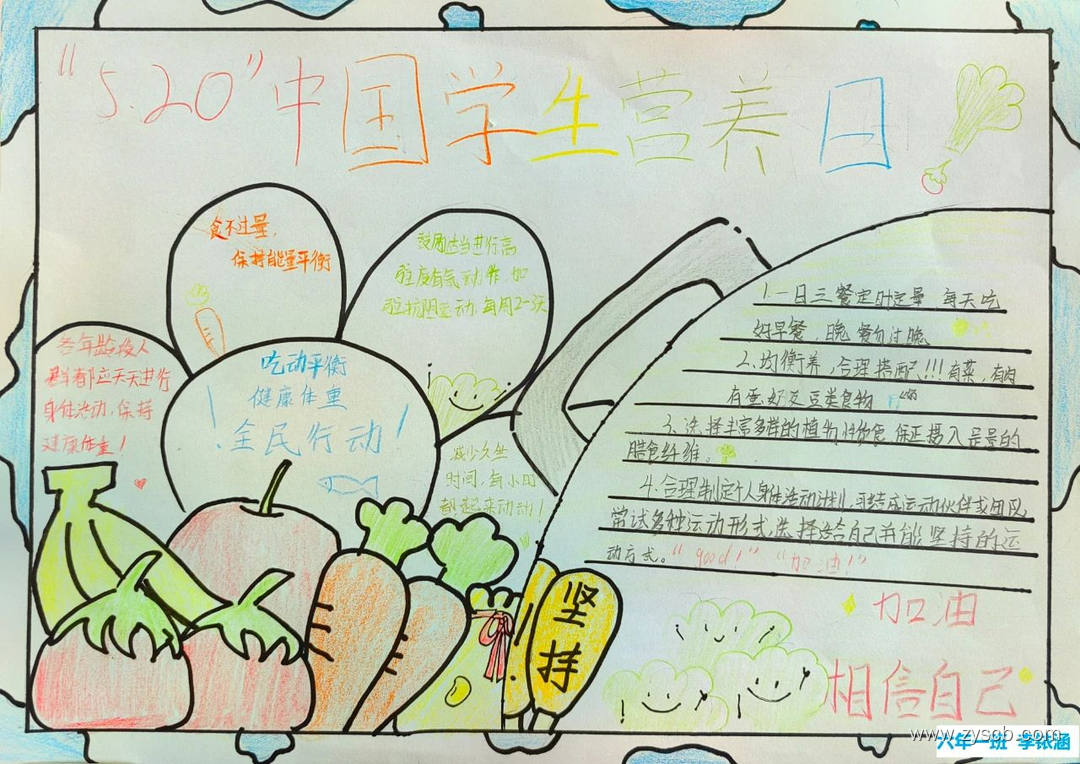 “5.20”中国学生营养日
食不过量,
保持能量平衡
鼓励适当进行高
强度有氧动作,加
强抗阻运动,每周2-3次
各年龄段人
群都应天天进行
身体活动,保持
健康体重!
吃动平衡
健康体重
全民行动!
减少久坐
时间,每小时
都起来动动!
1.一日三餐定时定量,每天吃
好早餐,晚餐勿过晚
2.均衡养,合理搭配!!!有菜,有肉
有蛋,好及豆类食物
3.选择丰富多样的植物性饮食,保证摄入足量的
膳食纤维。
4.合理制定个人身体活动计划,可结成运动伙伴或团队
常试多种运动形式,选择适合自己并能坚持的运
动方式。“good!”“加油!”
坚
持
加油
相信自己
www.zysab.com
六年一班 李依涵